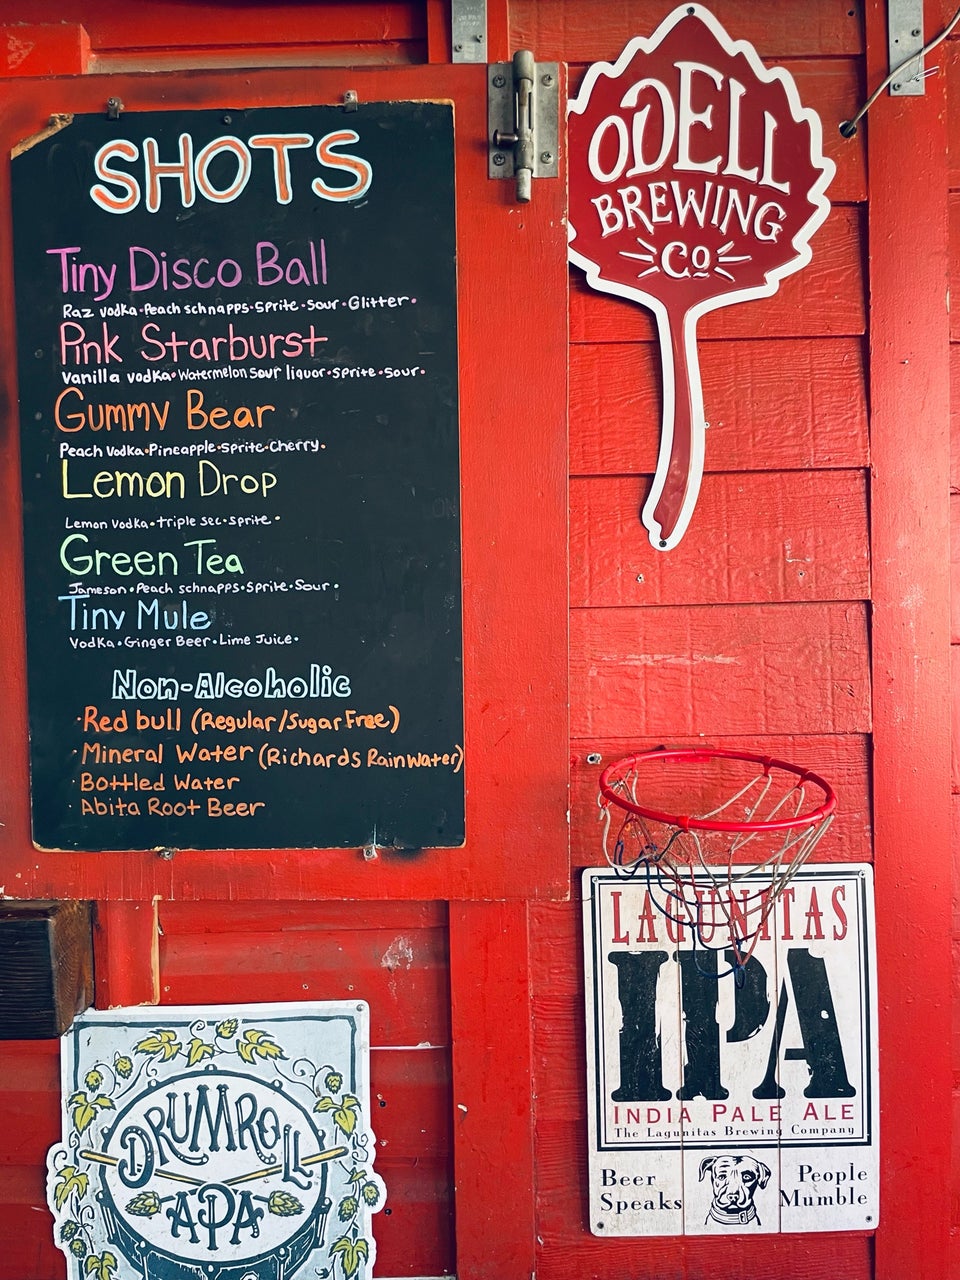 SHOTS
Tiny Disco Ball
Raz vodka • Peach schnapps • Sprite • Sour • Glitter •
Pink Starburst
Vanilla vodka • Watermelon Sour liquor • Sprite • Sour •
Gummy Bear
Peach Vodka • Pineapple • Sprite • Cherry •
Lemon Drop
Lemon Vodka • triple sec • sprite •
Green Tea
Jameson • Peach schnapps • Sprite • Sour •
Tiny Mule
Vodka • Ginger Beer • Lime Juice •
Non-Alcoholic
• Red bull (Regular/Sugar Free)
• Mineral Water (Richards Rainwater)
• Bottled Water
• Abita Root Beer
ODELL
BREWING
Co
LAGUNITAS
IPA
INDIA PALE ALE
The Lagunitas Brewing Company
Beer
Speaks
People
Mumble
DRUMROLL
APA